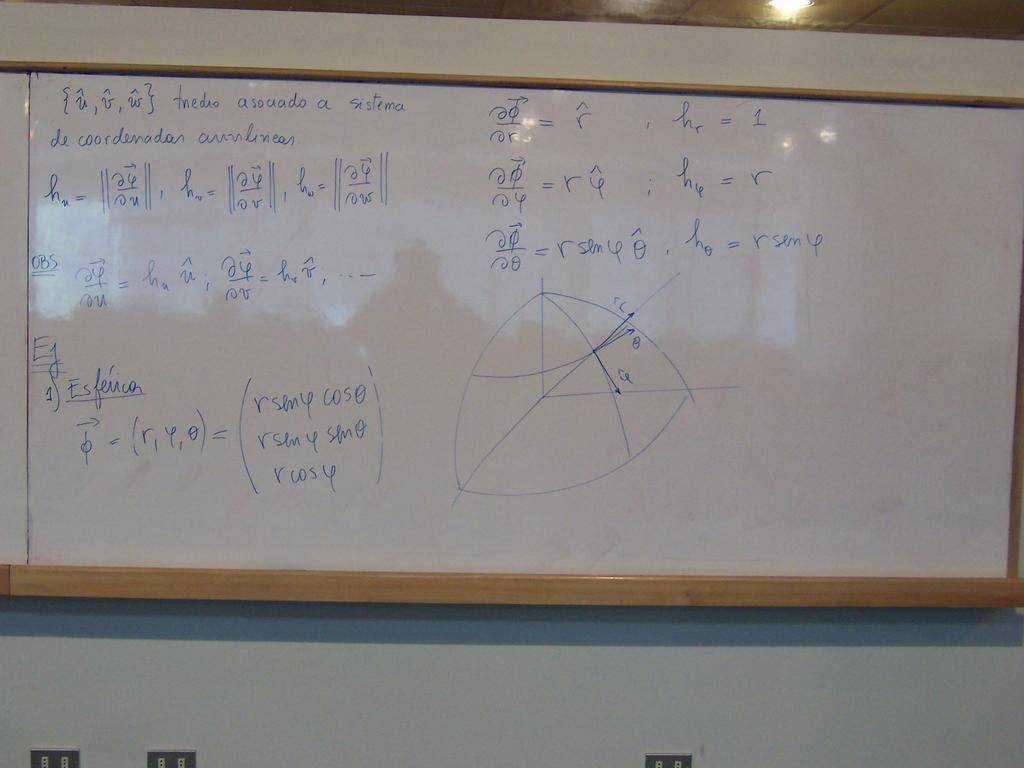 {û, v̂, ŵ} triedro asociado a sistema
de coordenadas curvilineas.
hᵤ = ||∂φ⃗/∂u||, hᵥ = ||∂φ⃗/∂v||, h_w = ||∂φ⃗/∂w||
OBS ∂φ⃗/∂u = hᵤ û ; ∂φ⃗/∂v = hᵥ v̂, ...
Ej
1) Esféricas
ϕ⃗ = (r, φ, θ) = (r senφ cosθ
r senφ senθ
r cosφ)
∂ϕ⃗/∂r = r̂ , h_r = 1
∂ϕ⃗/∂φ = r φ̂ ; h_φ = r
∂ϕ⃗/∂θ = r senφ θ̂ , h_θ = r senφ
r̂
θ̂
φ̂